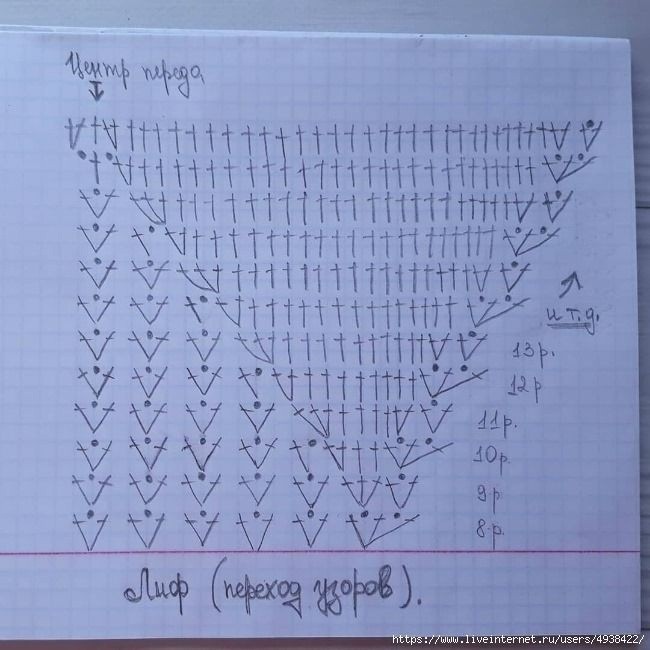 Центр переда
и т.д.
13р.
12р
11р.
10р.
9р
8р.
Лиф (переход узоров).
https://www.liveinternet.ru/users/4938422/